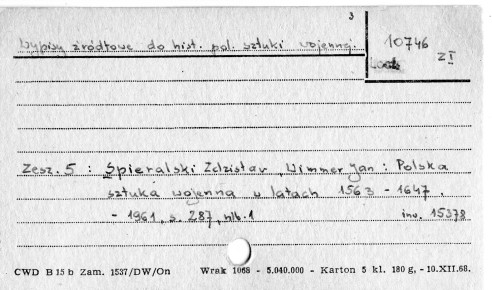 3
Wypisy źródłowe do hist. pol. sztuki wojennej.
10746
Z I
Zesz. 5 : Spieralski Zdzisław, Wimmer Jan : Polska
sztuka wojenna w latach 1563 - 1647.
- 1961, s. 287, nlb. 1
inw. 15378
CWD B 15 b Zam. 1537/DW/On Wrak 1068 - 5.040.000 - Karton 5 kl. 180 g, - 10.XII.68.